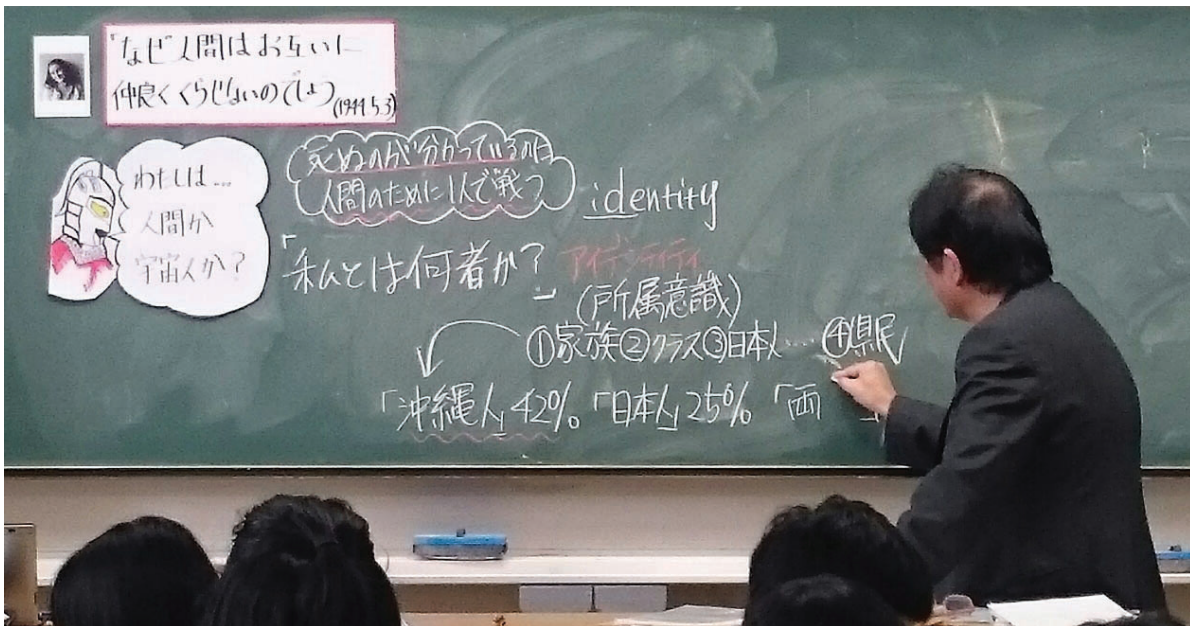 「なぜ人間はお互いに
仲良くくらせないのでしょう
(1944.5.3)
わたしは…
人間か
宇宙人か？
死ぬのが分かっている
人間のために1人で戦う
identity
「私とは何者か？」
アイデンティティ
(所属意識)
①家族②クラス③日本人……④県民
「沖縄人」42%「日本人」25%「両　」